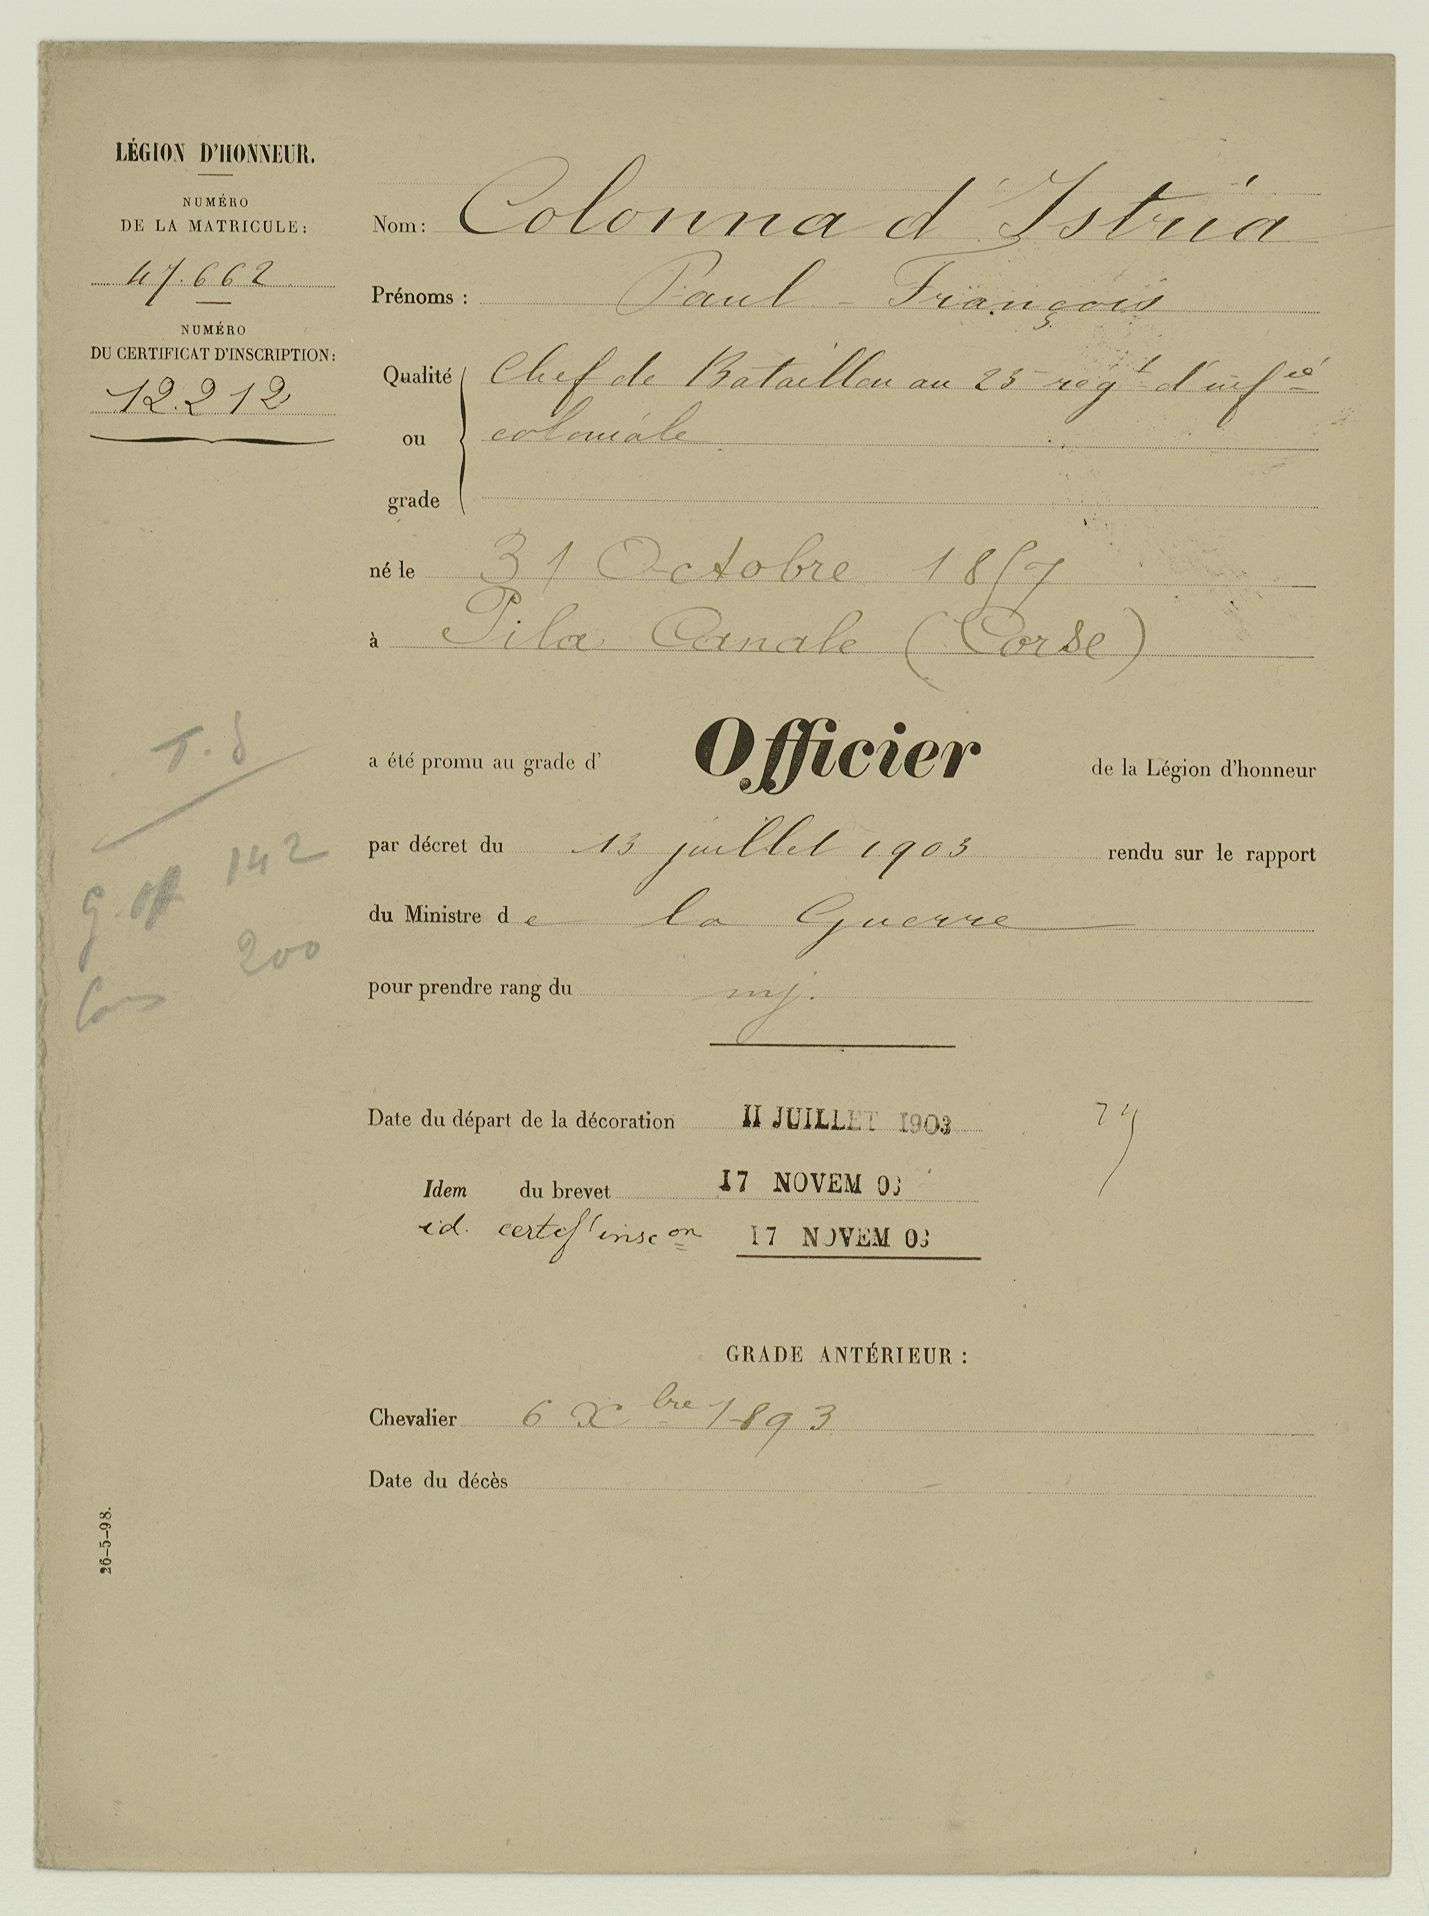 LÉGION D'HONNEUR.
NUMÉRO
DE LA MATRICULE:
47.662
NUMÉRO
DU CERTIFICAT D'INSCRIPTION:
12.212
Nom: Colonna d'Istria
Prénoms : Paul - François
Qualité ou grade
Chef de Bataillon au 23 régt d'infie
coloniale
né le 31 Octobre 1857
à Pila Canale (Corse)
a été promu au grade d' Officier de la Légion d'honneur
par décret du 13 juillet 1903 rendu sur le rapport
du Ministre de la Guerre
pour prendre rang du mj.
T. S
G. 142
200
Date du départ de la décoration 11 JUILLET 1903
Idem du brevet 17 NOVEM 03
id. certif d'insc on 17 NOVEM 03
GRADE ANTÉRIEUR :
Chevalier 6 Xbre 1893
Date du décès
26-5-98.